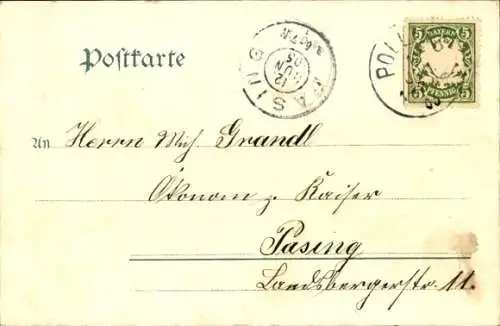 Postkarte
PASING
12
JUN
05
5 BAYERN 5
5 PFENNIG 5
POLL
An Herrn Mich. Grandl
Ökonom z. Kaiser
Pasing
Landsbergerstr. 11.